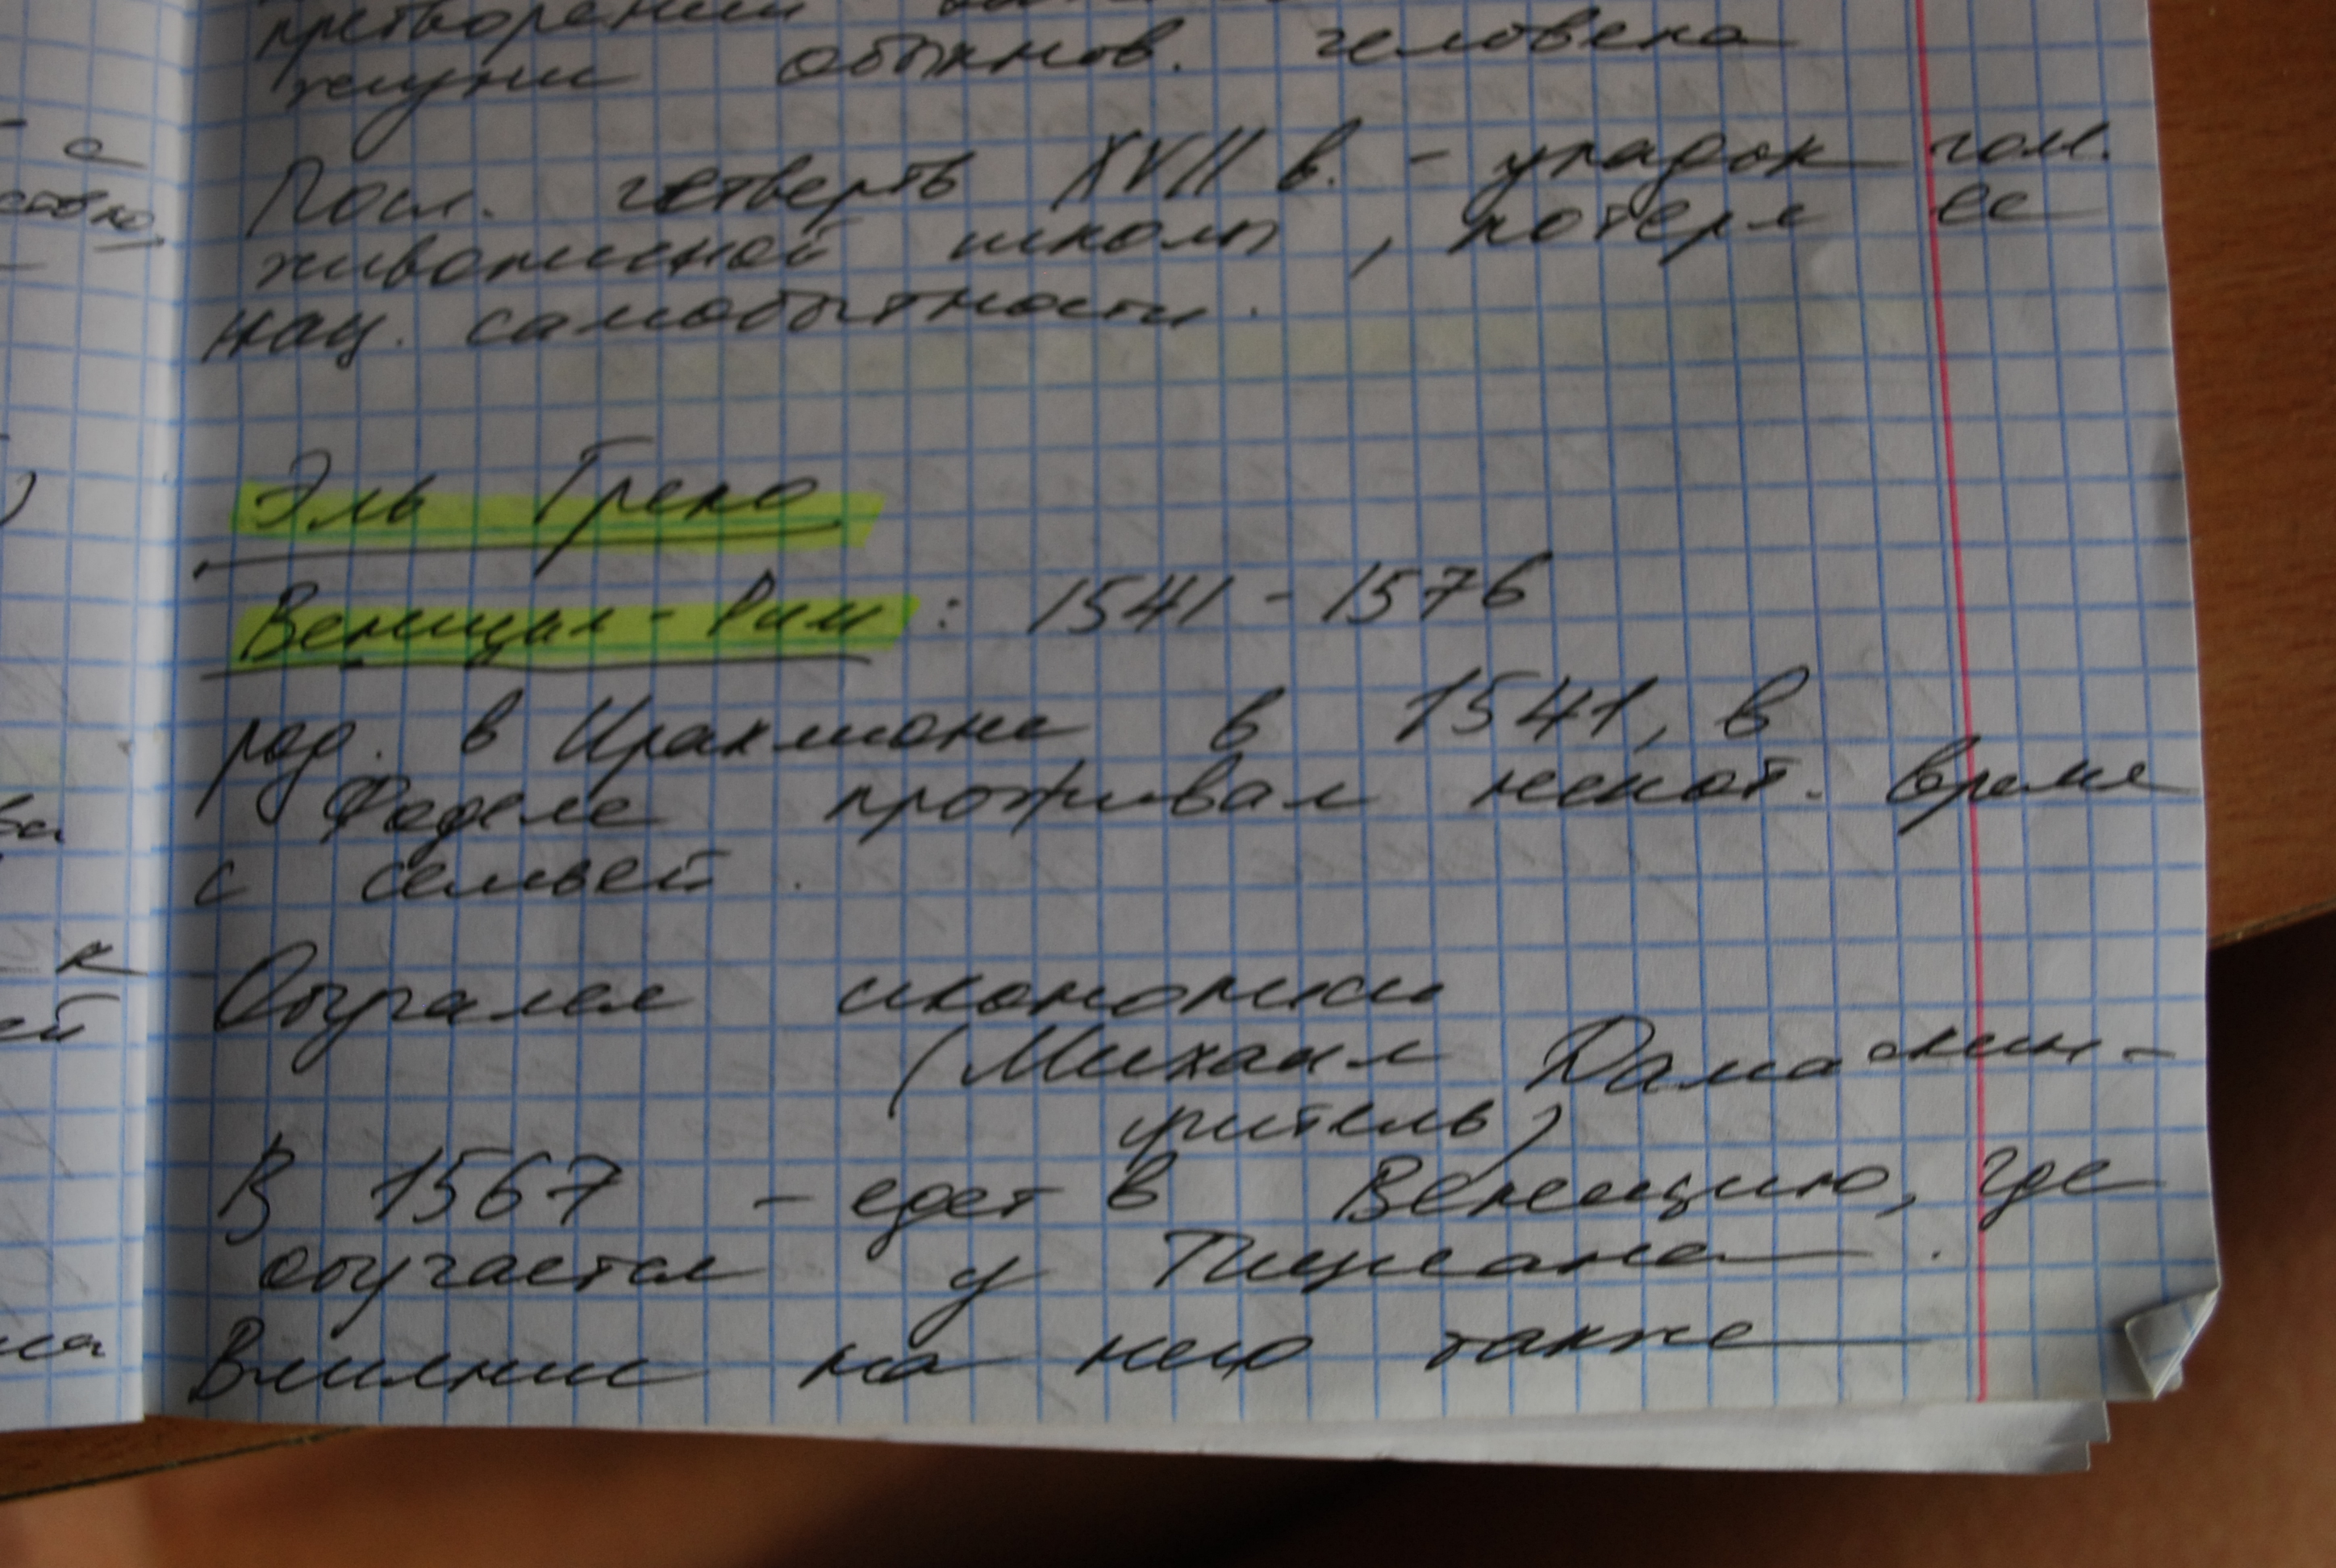 претворении
жизни обыкнов. человека
Посл. четверть XVII в. - упадок гол.
живописной школы, потеря ее
нац. самобытности.
Эль Греко
Венеция - Рим : 1541 - 1576
род. в Ираклионе в 1541, в
Фоделе проживал некот. время
с семьей.
Обучался иконописи
(Михаил Дамаскин -
учитель)
В 1567 - едет в Венецию, где
обучается у Тициана.
Влияние на него также